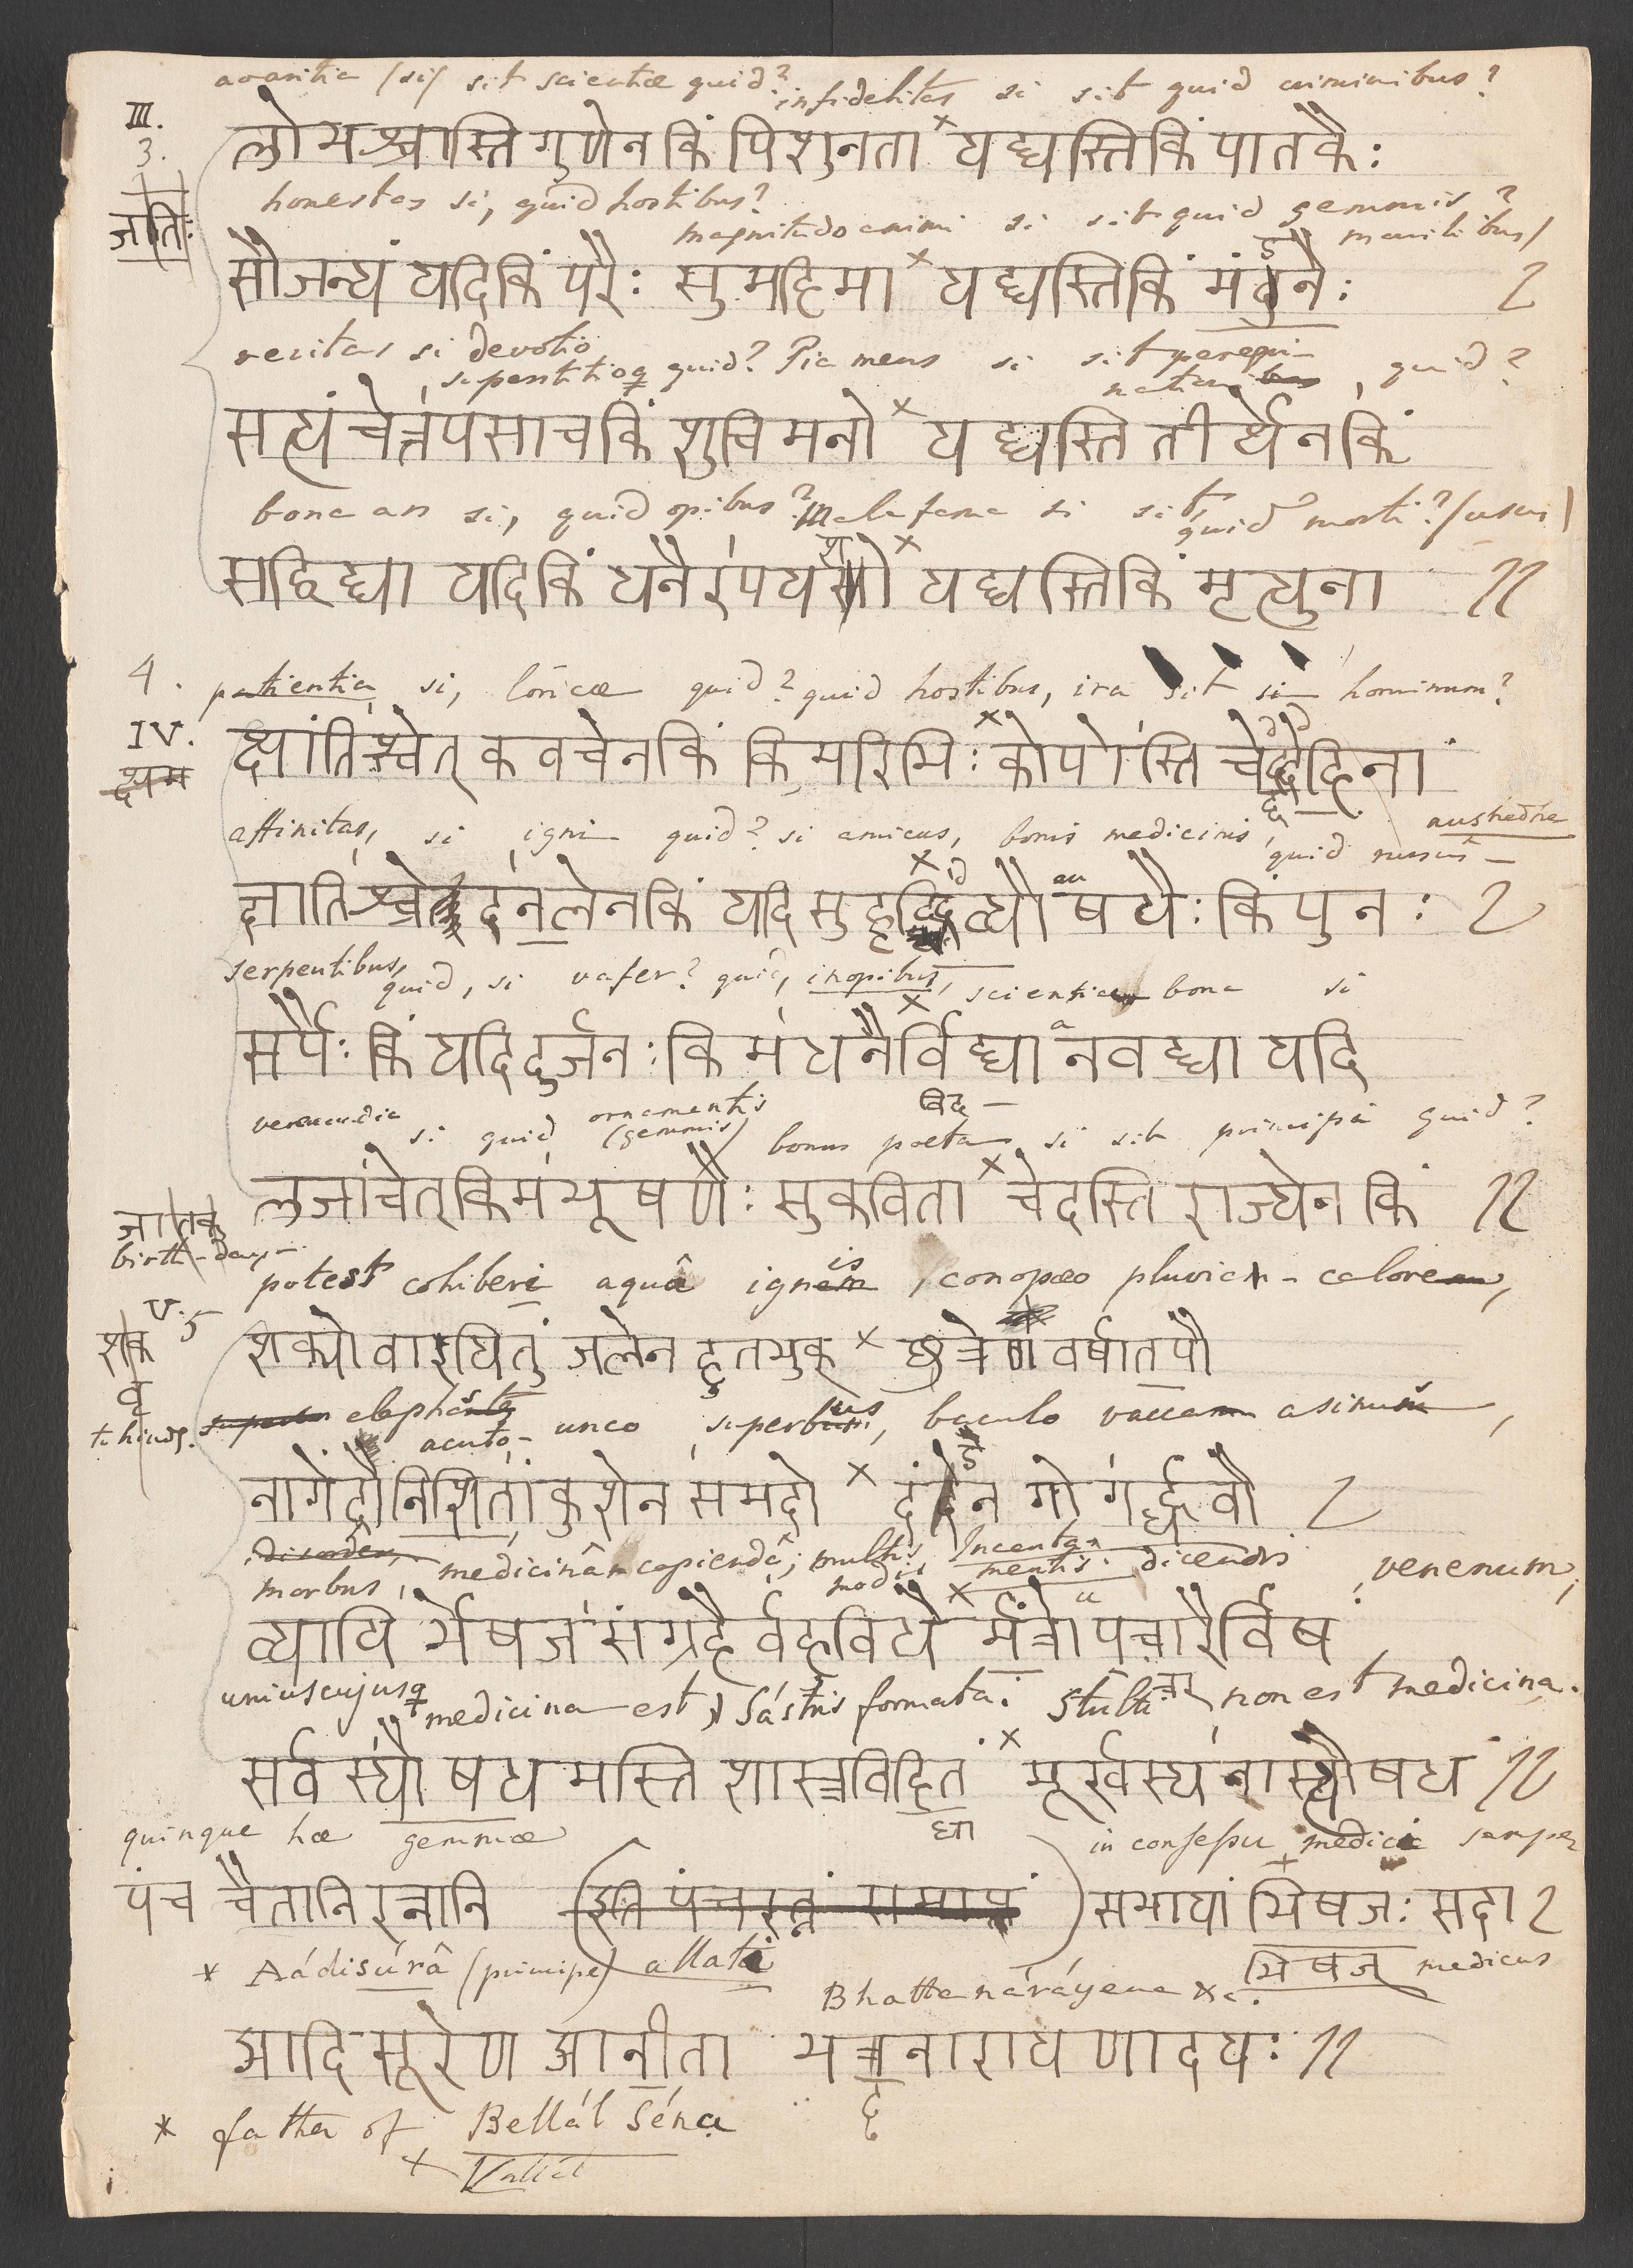 avaritia (si) sit scientiæ quid? infidelitas si sit quid criminibus?
III.
3.
लोभश्चास्ति गुणेन किं पिशुनता × यद्यस्ति किं पातकैः
honestas si, quid hostibus? magnitudo animi si sit quid gemmis?
monilibus/
जाति:
सौजन्यं यदि किं परैः सुमहिमा × यद्यस्ति किं मंडनैः २
veritas si devotio quid? Pia mens si sit peregri- quid?
superstitioq nationi
सत्यं चेत्तपसा च किं शुचि मनो × यद्यस्ति तीर्थेन किं
bona ars si, quid opibus? Mala fama si sit quid morti? /usus/
सद्विद्या यदि किं धनैरपयशो × यद्यस्ति किं मृत्युना ॥
4. patientia si, loricæ quid? quid hostibus, ira sit si hominum?
IV.
क्षांतिश्चेत् कवचेन किं किमरिभिः × कोपोस्ति चेद्देहिनां
affinitas, si igni quid? si amicus, bonis medicinis, quid rursus
aushedhe
ज्ञातिश्चेदनलेन किं यदि सुहृद्दिव्यौषधैः किं पुनः २
serpentibus, quid, si vafer? quid, inopibus, scientia bona si
सर्पैः किं यदि दुर्जनः किमधनैर्विद्यानवद्या यदि
verecundia si quid ornamentis (gemmis) bonus poeta si sit principi quid?
लज्जा चेत् किम भूषणैः सुकविता × चेदस्ति राज्येन किं ॥
जातक
birth-day-
potest cohiberi aquâ ignis, conopæo pluvia - calore,
V. 5
शक्यो वारयितुं जलेन हुतभुक् × छत्रेण वर्षातपौ
elephas acuto unco superbus, baculo vacca asinus,
नागेंद्रो निशितांकुशेन समदो × दंडेन गोगर्द्धवौ २
morbus, medicinâ capiendâ; multis modis Incanta-
mentis dicendis, venenum,
व्याधि र्भेषजसंग्रहैर्वहुविधै × र्मंत्रोपचारैर्विष
uniuscujusq medicina est, Sástris formata: Stulti non est medicina.
सर्वस्यौषधमस्ति शास्त्रविहितं × मूर्खस्य नास्त्यौषधं ॥
quinque hæ gemmæ in consessu medici semper
पंच चैतानि रत्नानि (इति पंचरत्नं समाप्तं) सभायां भिषजः सदा २
* Aádisúrâ (principe) allata
भिषज् medicus
Bhatta náráyena &c.
आदिसूरेण आनीता भट्टनारायणादयः ॥
* father of Bellál Séna
× Vallál